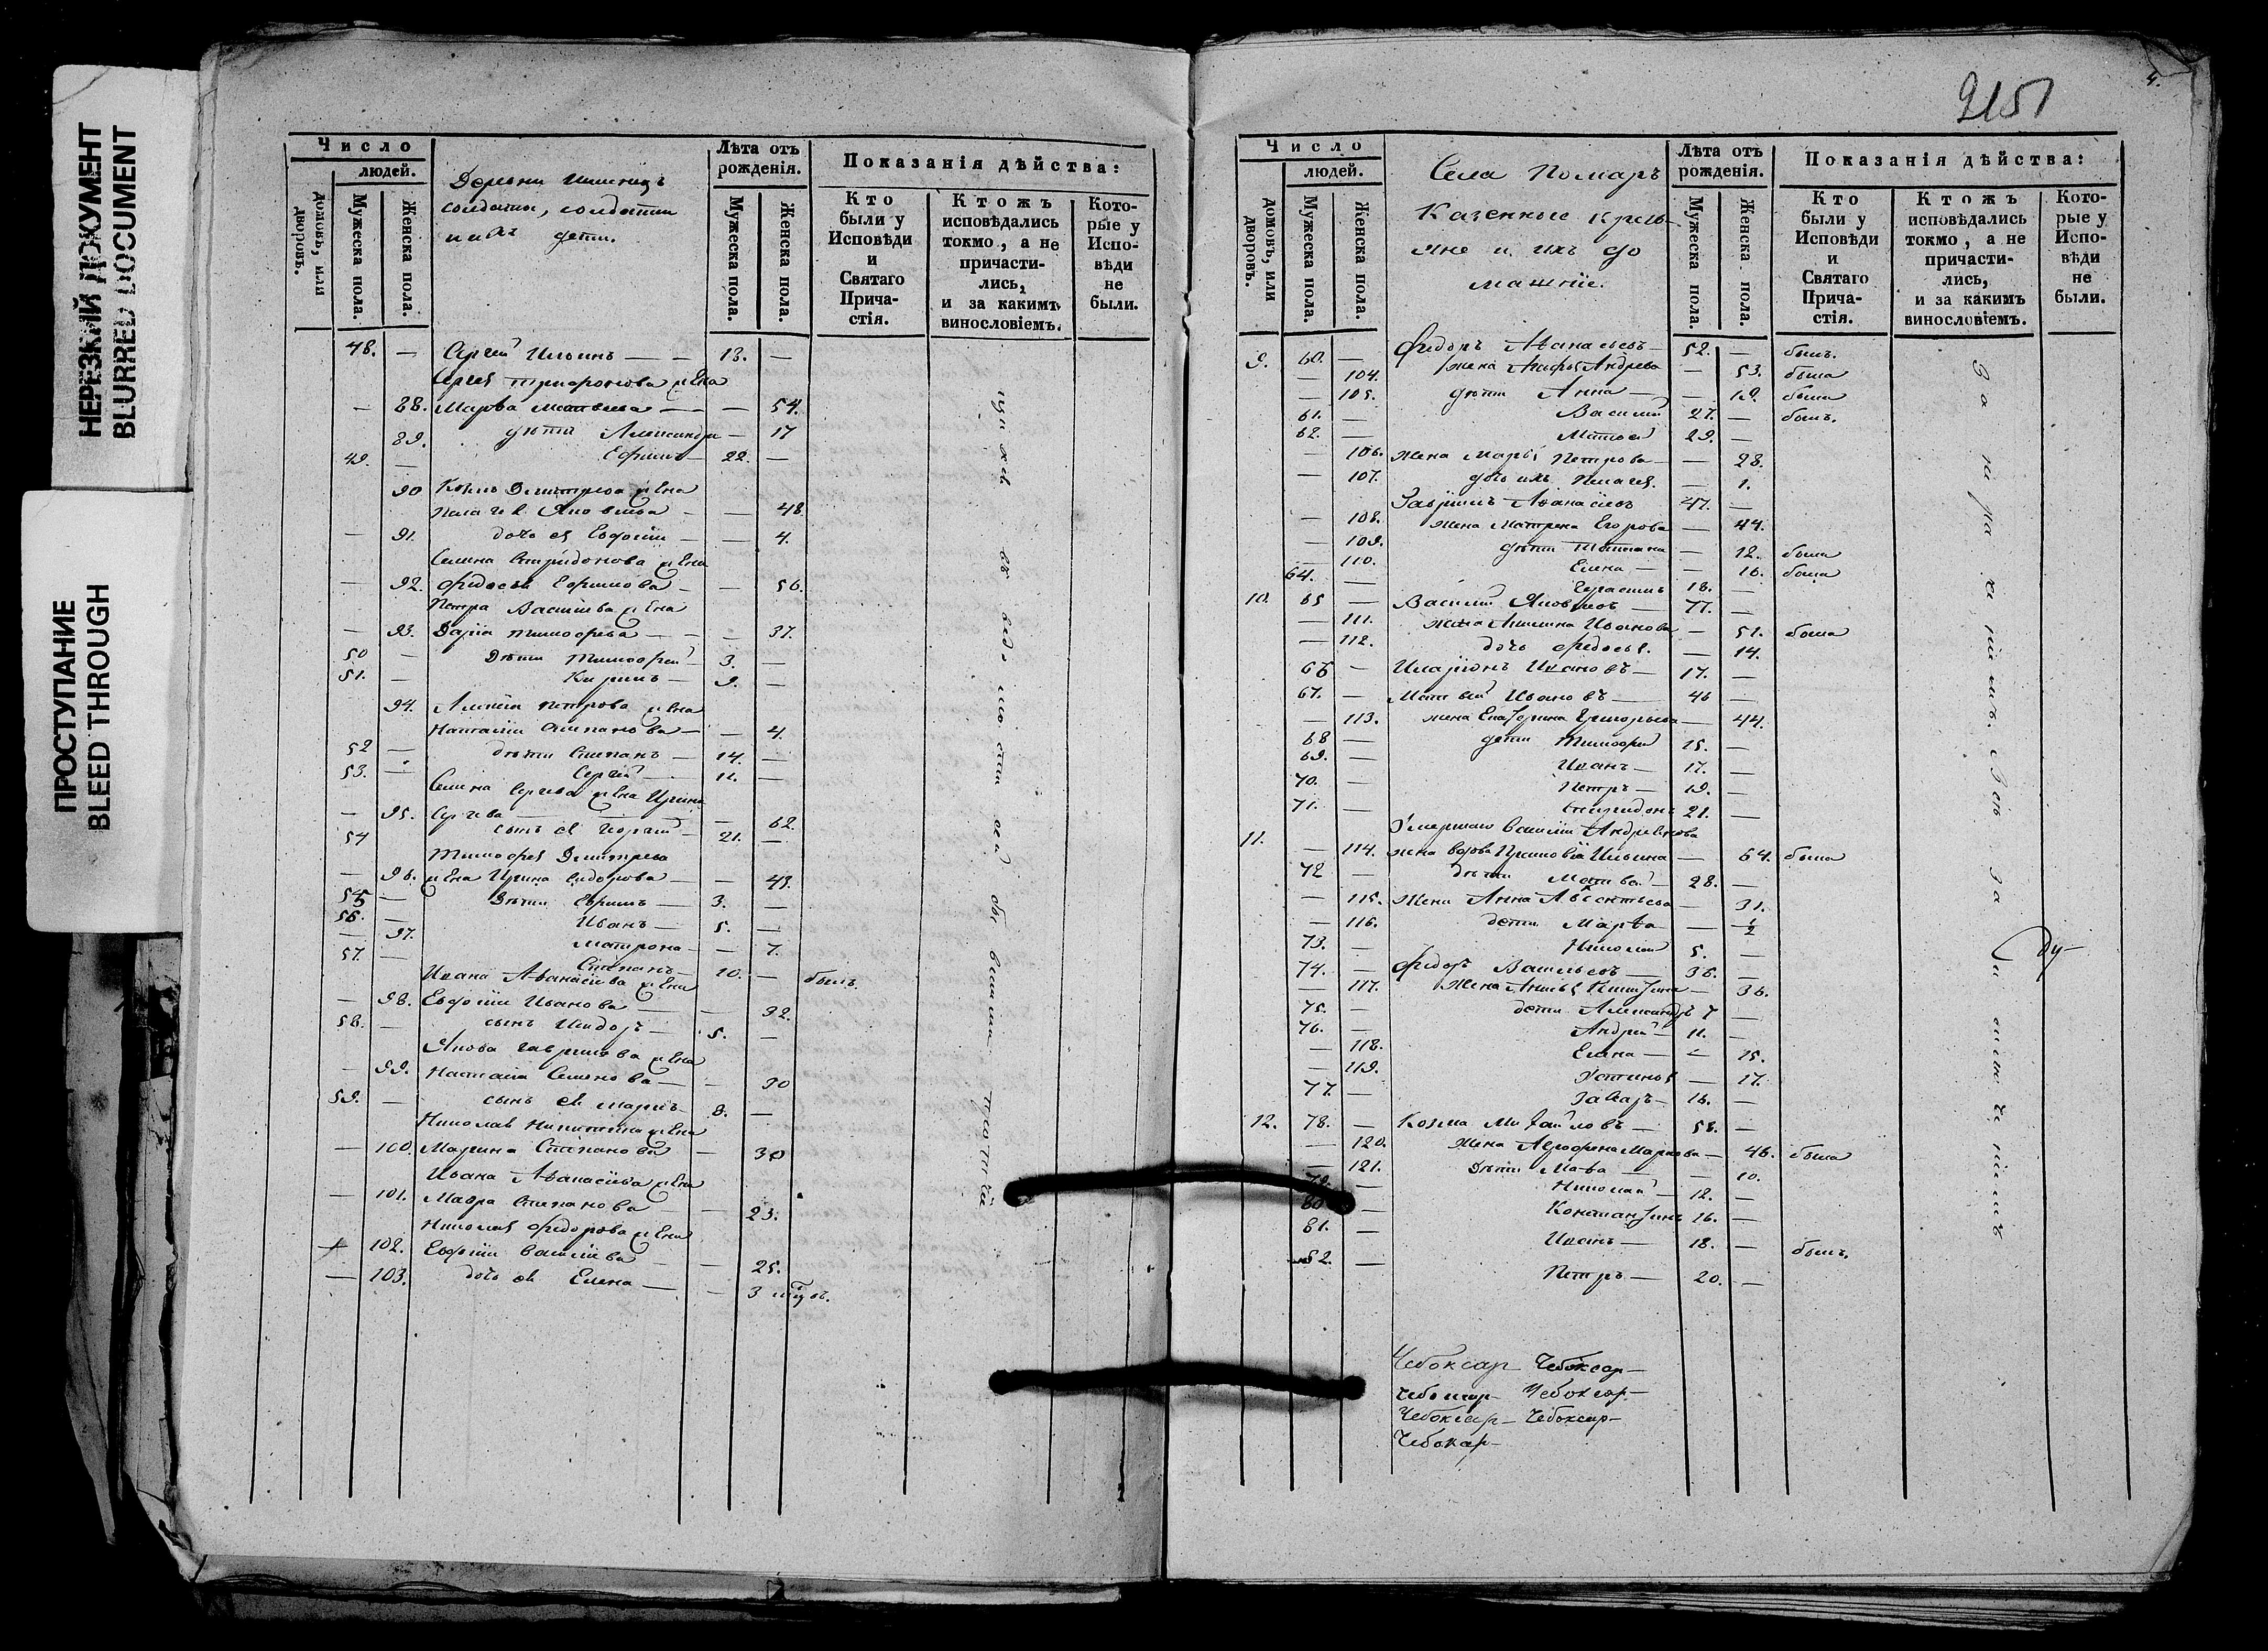 НЕРЕЗКИЙ ДОКУМЕНТ
BLURRED DOCUMENT
ПРОСТУПАНИЕ
BLEED THROUGH
Число
людей.
домовъ, или дворовъ.
Мужеска пола.
Женска пола.
Деревни
солдаты, солдатки
и ихъ дети.
Лѣта отъ рожденія.
Мужеска пола.
Женска пола.
Показанія дѣйства:
Кто были у Исповѣди и Святаго Причастія.
Ктожъ исповѣдались токмо, а не причастились, и за какимъ винословіемъ.
Которые у Исповѣди не были.
48. — Сергей Ильинъ — — 13. —
Сергея Трифонова жена
— 88. Марѳа Матвеева — — 54.
89. дѣти Александра — 17
49. — Ефимъ — 22. —
90 Козмы Дмитрева жена
Пелагея Яковлева — — 48
— 91. дочь ея Евфимія — — 4.
Семена Спиридонова жена
— 92. Федосья Ефимова — — 56.
Петра Васильева жена
— 93. Дарья Тимофеева — — — 37.
50 — Дѣти Тимофей — 3. —
51. — Кирилъ — 9. —
94. Алексея Петрова жена
Наталія Степанова — — 4.
52 — дѣти Степанъ — 14. —
53. — Сергей — 11. —
Семена Сергева жена Ирина
— 95. Сергева — — 62.
54 сынъ ея — 21. —
Тимофея Дмитрева
— 96. жена Ирина Сидорова — — 43.
55 — Дѣти Ефимъ — 3. —
56. — Иванъ — 5. —
— 97. Матрона — — 7.
57. — Степанъ — 10. — былъ.
Ивана Афанасьева жена
— 98. Евфимія Иванова — — 32.
58. — сынъ Исидоръ — 5. —
Якова Гаврилова жена
— 99. Наталія Семенова — — 30
59. — сынъ ея Маркъ — 8. —
Николая Никитина жена
— 100. Марина Степанова — 30
Ивана Афанасьева жена
— 101. Мавра Степанова — 23.
Николая Федорова жена
102. Евфимія Васильева — — 25.
— 103. дочь ея Елена — — 3
4.
2151
Число
людей.
домовъ, или дворовъ.
Мужеска пола.
Женска пола.
Села Помаръ
Казенные кресть-
яне и ихъ до
машніе.
Лѣта отъ рожденія.
Мужеска пола.
Женска пола.
Показанія дѣйства:
Кто были у Исповѣди и Святаго Причастія.
Ктожъ исповѣдались токмо, а не причастились, и за какимъ винословіемъ.
Которые у Исповѣди не были.
9. 60. — Федоръ Афанасьевъ — 52. — былъ.
— 104. жена Андрева — 53. была
— 105. дѣти Анна — — 19. была
61. — Василій 27. — былъ.
62. — Матвей 29. —
— 106. жена Марья Петрова — — 28.
— 107. дочь ихъ Пелагея. — 1.
Гаврилъ Афанасьевъ 47. —
— 108. жена Матрена Егорова — 44.
— 109. дѣти Татьяна — 12. была
— 110. Елена — — 16. была
64. — Герасимъ 18. —
10. 65 — Василій Яковлевъ — 77. —
— 111. жена Акилина Иванова — 51. была
— 112. дочь Федосья. — 14.
66 — Иларіонъ Ивановъ — 17. —
67. — Матвей Ивановъ — 46 —
— 113. жена Екатерина Григорьева — 44.
68 — дети Тимофей 15. —
69. — Иванъ — 17. —
70. — Петръ — 19. —
71. — Спиридонъ 21. —
Умершаго Василія Андреянова
11. — 114. жена вдова Прасковія Ильина — 64. была
72 — дѣти Матвей — 28. —
— 115. жена Анна Авксентьева — 31.
— 116. дети Марѳа — 1/2
73. — Николай 5. —
74. — Федоръ Васильевъ — 36. —
— 117. жена Анисья Никитина — 36.
75. — дети Александръ 7 —
76. — Андрей — 11. —
— 118. Елена — — 15.
— 119. Устинья — 17.
77. — Захаръ — 16. —
12. 78. — Козма Михайловъ — 58. —
— 120. жена Агрофена Маркова — 46. была
— 121. Дѣти — 10.
79. — Николай — 12. —
80 — Константинъ 16. —
81. — Иванъ — 18. — былъ.
82. — Петръ — 20. —
Чебоксар— Чебоксар—
Чебоксар— Чебоксар—
Чебоксар— Чебоксар—
Чебокар—